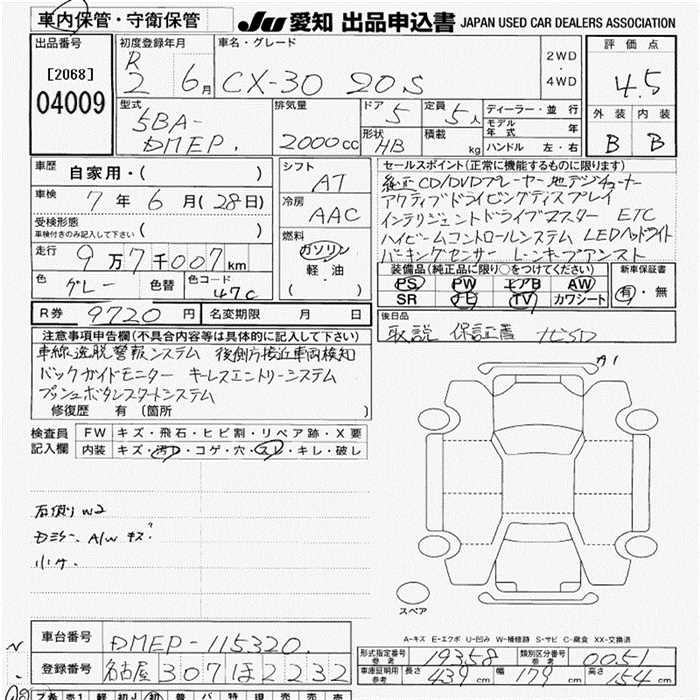 車内保管・守衛保管
JU 愛知 出品申込書 JAPAN USED CAR DEALERS ASSOCIATION
出品番号
[2068]
04009
初度登録年月
R2 6月
車名・グレード
CX-30 20S
2WD・4WD
評価点
4.5
外装 内装
B B
型式
5BA-DMEP.
排気量
2000cc
ドア 5
定員 5人
形状 HB
積載 kg
ディーラー・並行
モデル年式 年
ハンドル 左・右
車歴 自家用・( )
車検 7年6月(28日)
受検形態
車検付きのみ記入して下さい ( )
走行 9万7千007km
色 グレー 色替 色コード 47C
シフト AT
冷房 AAC
燃料
ガソリン
軽油
( )
セールスポイント(正常に機能するものに限ります)
純正CD/DVDプレーヤー 地デジチューナー
アクティブドライビングディスプレイ
インテリジェントドライブマスター ETC
ハイビームコントロールシステム LEDヘッドライト
パーキングセンサー レーンキープアシスト
装備品(純正品に限り○をつけてください)
PS PW エアB AW
SR ナビ TV カワシート
新車保証書
有・無
R券 9720円 名変期限 月 日
後日品
取説 保証書 ナビSD
注意事項申告欄(不具合内容等は具体的に記入して下さい)
車線逸脱警報システム 後側方接近車両検知
バックガイドモニター キーレスエントリーシステム
プッシュボタンスタートシステム
修復歴 有 〔箇所 〕
検査員記入欄
FW キズ・飛石・ヒビ割・リペア跡・X要
内装 キズ・汚れ・コゲ・穴・スレ・キレ・破し
右側リW2
Dミラー、A/Wキズ
小キ
A1
スペア
A-キズ E-エクボ U-凹み W-補修跡 S-サビ C-腐食 XX-交換済
車台番号 DMEP-115320
登録番号 名古屋307ほ2232
形式指定番号 参考 19358 類別区分番号 参考 0051
車庫証明用 参考 長さ 439cm 幅 179cm 高さ 154cm